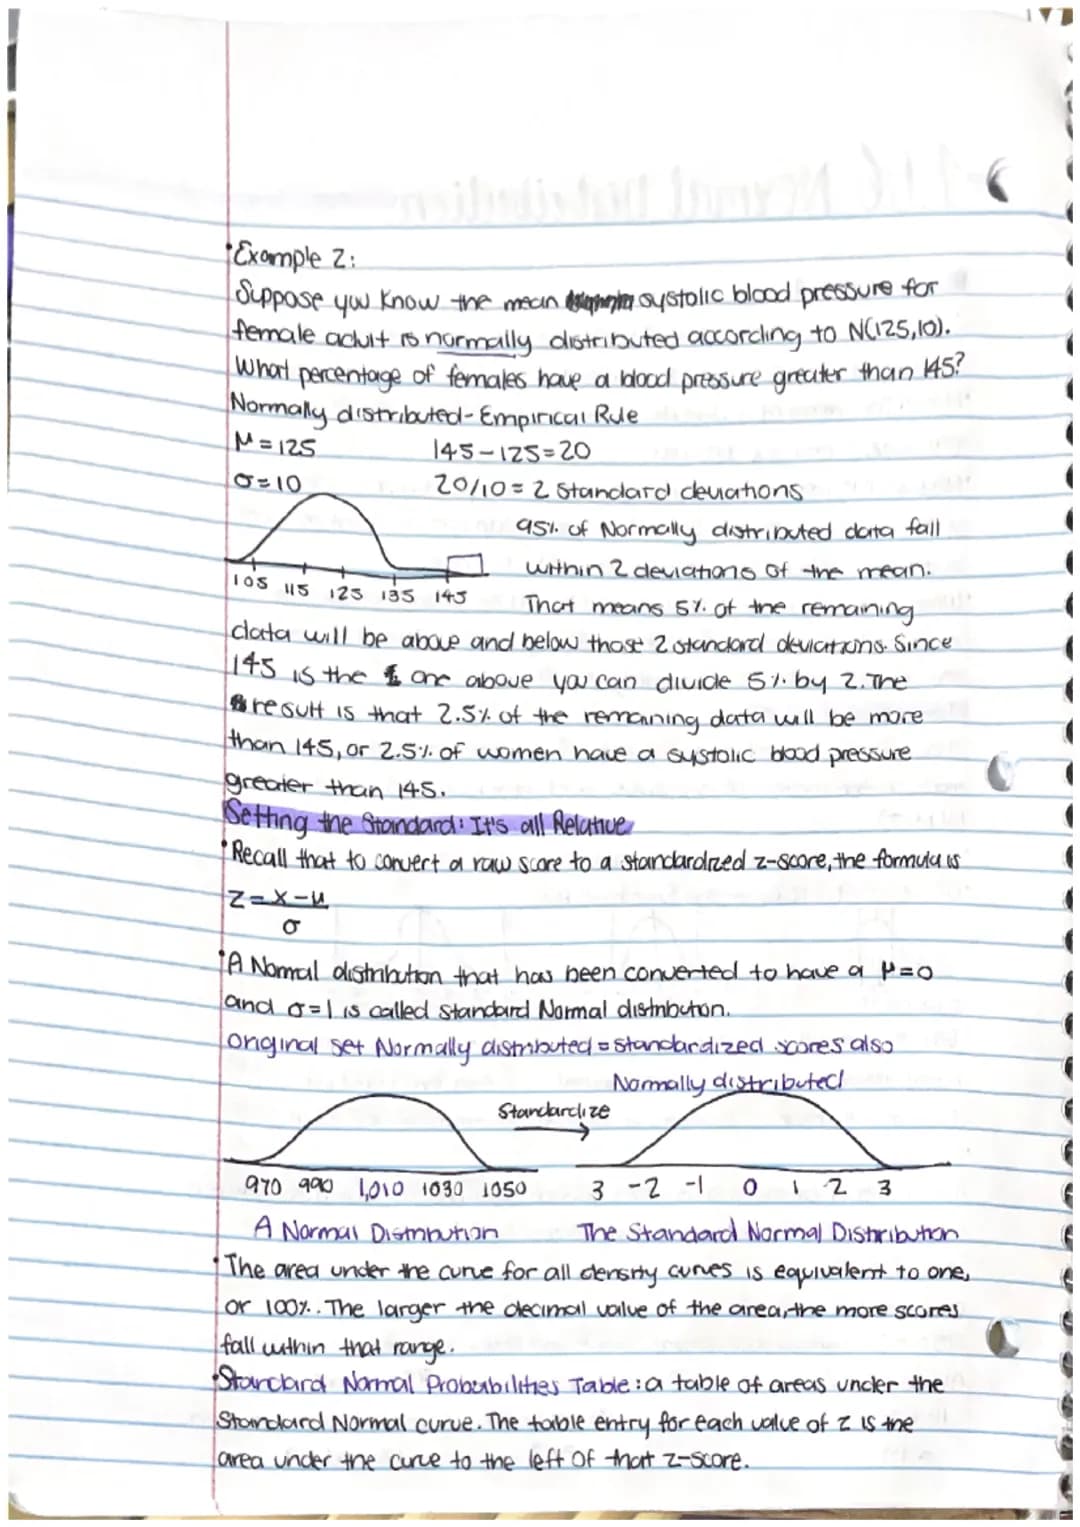 •Example 2:
Suppose you know the mean systolic blood pressure for
female adult is normally distributed according to N(125,10).
What percentage of females have a blood pressure greater than 145?
Normally distributed-Empirical Rule
μ=125 145-125=20
σ=10 20/10=2 Standard deviations
95% of Normally distributed data fall
within 2 deviations of the mean.
105 115 125 135 145
That means 5% of the remaining
data will be above and below those 2 standard deviations. Since
145 is the one above you can divide 5% by 2. The
result is that 2.5% of the remaining data will be more
than 145, or 2.5% of women have a systolic blood pressure
greater than 145.
Setting the Standard: It's all Relative
•Recall that to convert a raw score to a standardized z-score, the formula is
Z=x-μ
σ
•A Normal distribution that has been converted to have a μ=0
and σ=1 is called standard Normal distribution.
original set Normally distributed = standardized scores also
Normally distributed
Standardize
970 990 1,010 1030 1050 3 -2 -1 0 1 2 3
A Normal Distribution The Standard Normal Distribution
•The area under the curve for all density curves is equivalent to one,
or 100%. The larger the decimal value of the area, the more scores
fall within that range.
•Standard Normal Probabilities Table: a table of areas under the
Standard Normal curve. The table entry for each value of z is the
area under the curve to the left of that z-score.